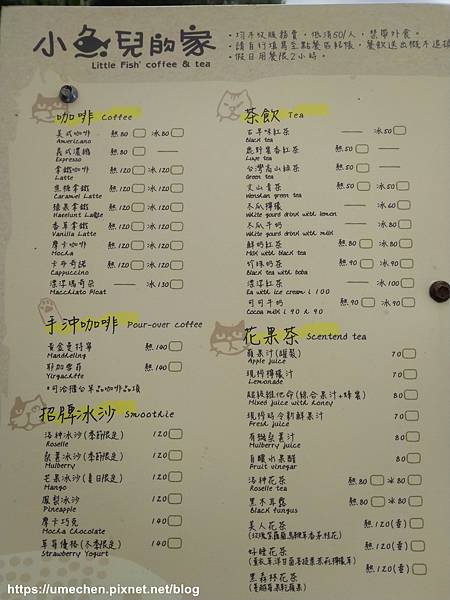 小魚兒的家
Little Fish' coffee & tea
·均手紋服務費，低消50/人，禁帶外食。
·請自行填寫至點餐區結帳，餐飲送出概不退換
·假日用餐限2小時。
咖啡 Coffee
美式咖啡 熱80 冰80
Americano
義式濃縮 熱80 —
Espresso
拿鐵咖啡 熱120 冰120
Latte
焦糖拿鐵 熱120 冰120
Caramel Latte
榛果拿鐵 熱120 冰120
Hazelunt Latte
香草拿鐵 熱120 冰120
Vanilla Latte
摩卡咖啡 熱120 冰120
Mocha
卡布奇諾 熱120 冰120
Cappuccino
漂浮瑪奇朵 — 冰130
Macchiato Float
手沖咖啡 Pour-over coffee
黃金曼特寧 熱140
Mandheling
耶加雪菲 熱140
Yirgacheffe
*可洽櫃台單品咖啡品項
招牌冰沙 Smoothie
洛神冰沙(季節限定) 120
Roselle
桑葚冰沙(季節限定) 120
Mulberry
芒果冰沙(夏日限定) 120
Mango
鳳梨冰沙 120
Pineapple
摩卡巧克 140
Mocha Chocolate
草莓優格(冬季限定) 140
Strawberry Yogurt
茶飲 Tea
古早味紅茶 — 冰50
Black tea
鹿野蜜香紅茶 熱50
Luye tea
台灣高山綠茶 熱50
Green tea
文山青茶 熱50 冰50
Wenshan green tea
冬瓜檸檬 — 冰60
White gourd drink with lemon
冬瓜牛奶 — 冰80
White gourd drink with milk
鮮奶紅茶 熱80 冰80
Black tea with milk
珍珠奶茶 熱90 冰90
Black tea with boba
漂浮紅茶 — 冰100
Tea with ice cream
可可牛奶 熱90 冰90
Cocoa milk
花果茶 Scentend tea
蘋果汁(罐裝) 70
Apple juice
現榨檸檬汁 70
Lemonade
超級維他命(綜合果汁+蜂蜜) 80
Mixed juice with honey
現榨時令新鮮果汁 70
Fresh juice
有機桑葚汁 80
Mulberry juice
自釀水果醋 80
Fruit vinegar
洛神花茶 熱80 冰80
Roselle tea
黑木耳露 熱80 冰80
Black fungus
美人花茶 熱120(壺)
好睡花茶 熱120(壺)
黑森林花茶 熱120(壺)
https://umechen.pixnet.net/blog